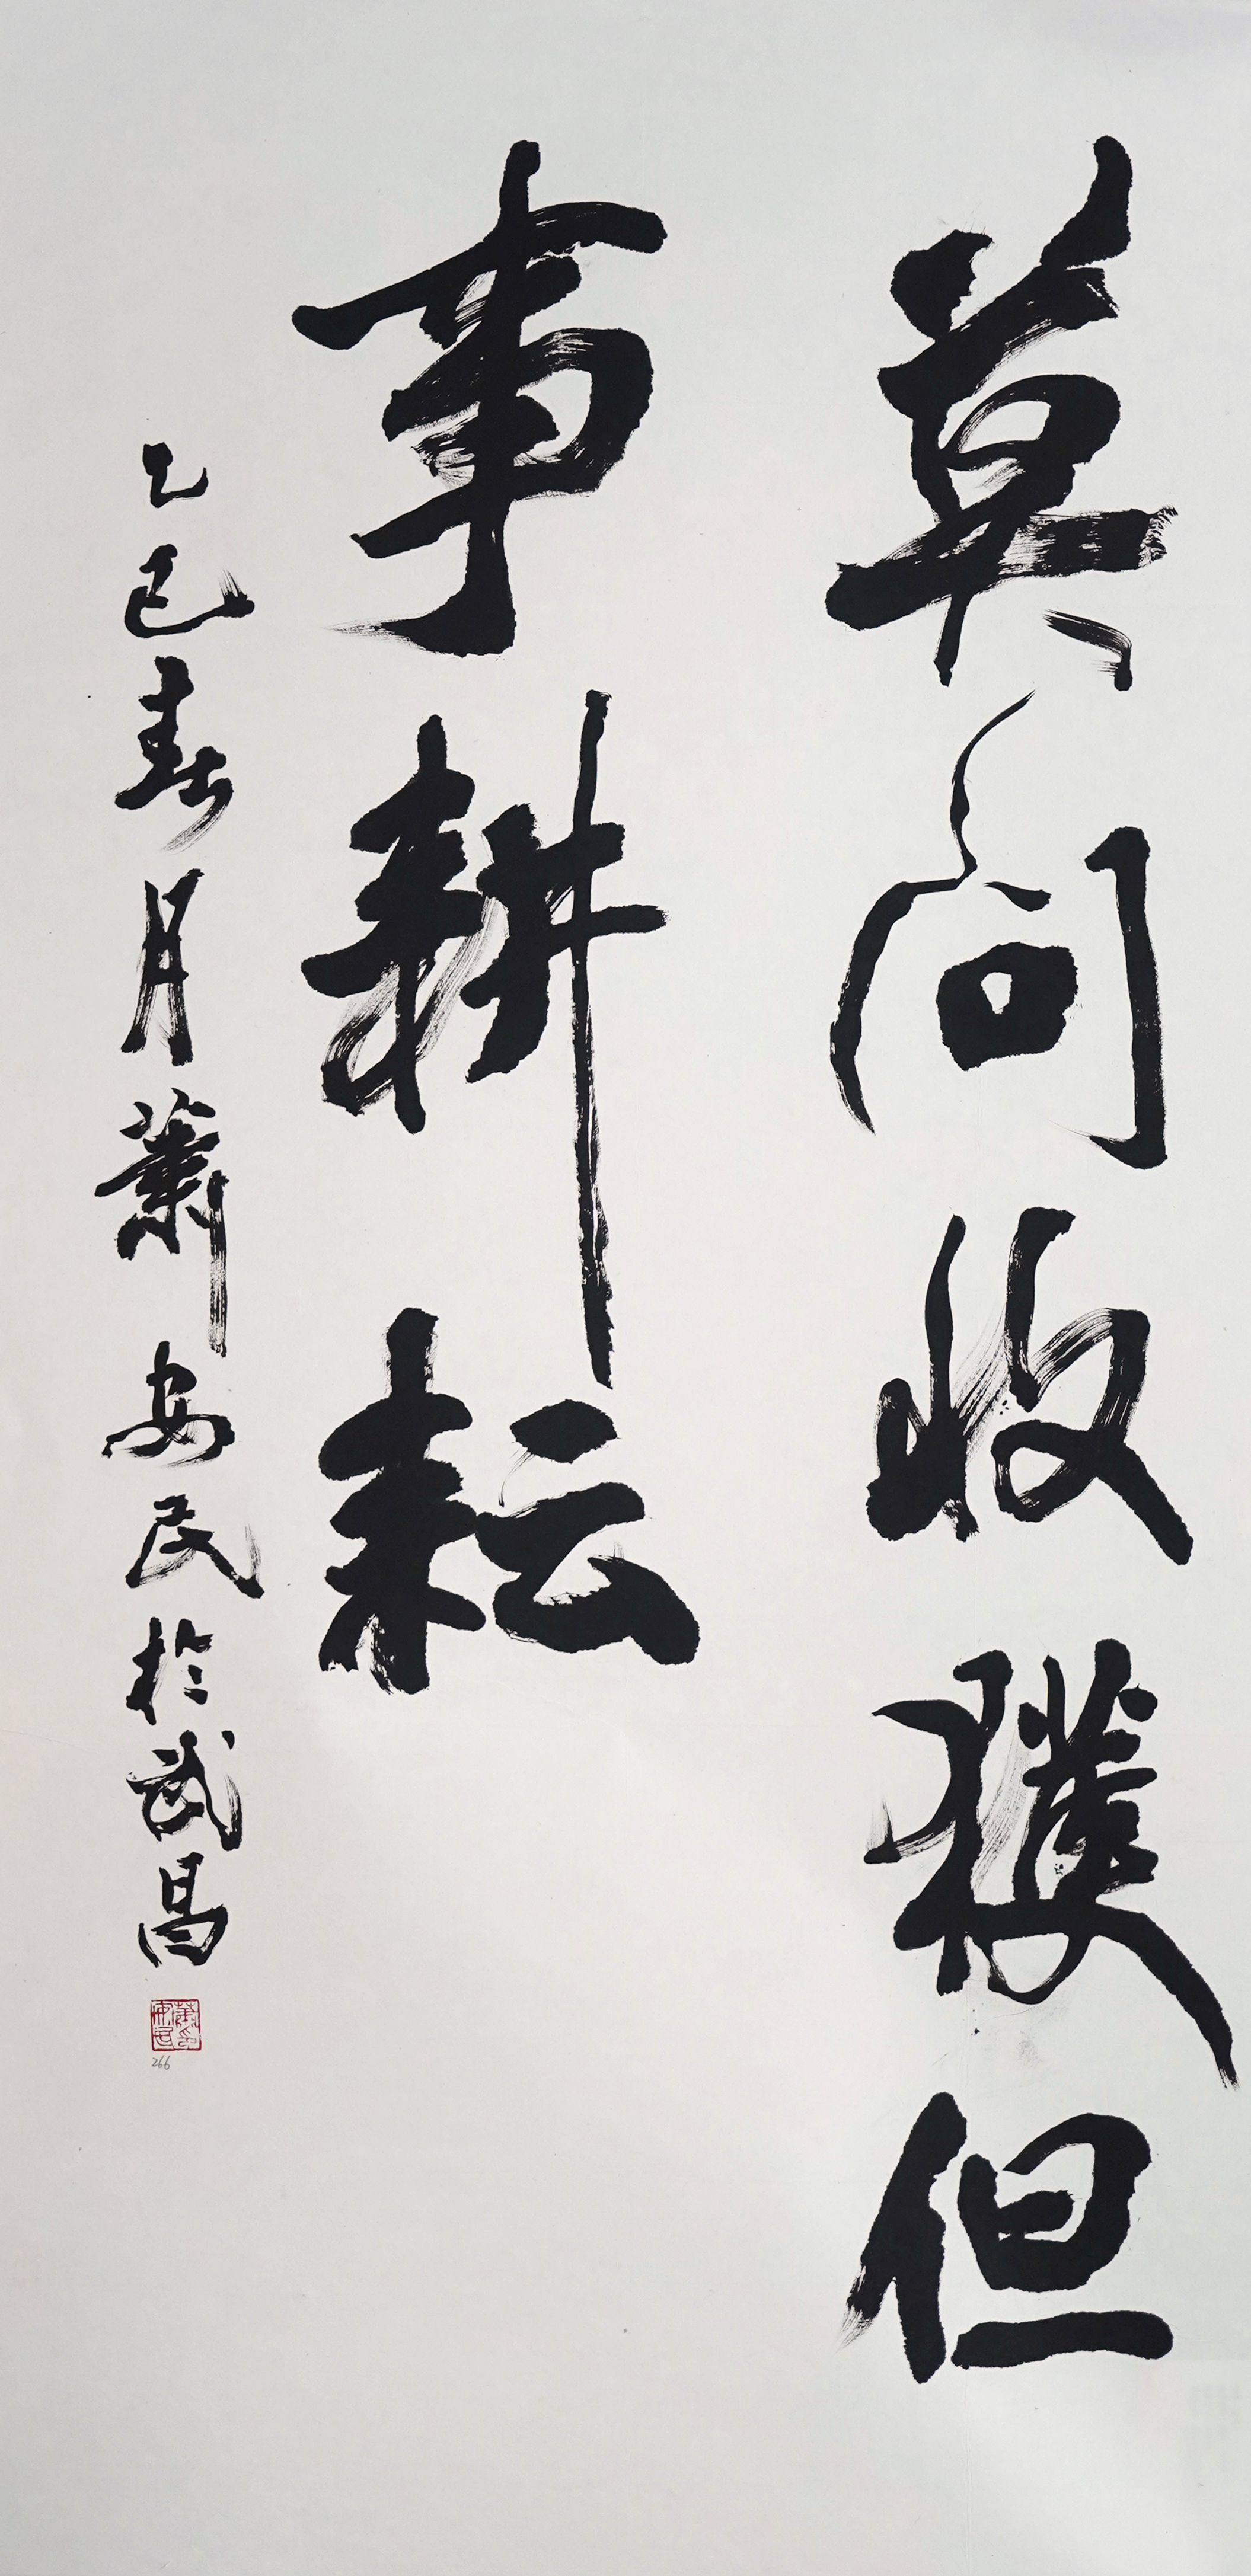 莫问收獲但
事耕耘
乙巳春月蕭安民於武昌
萧安民印
266